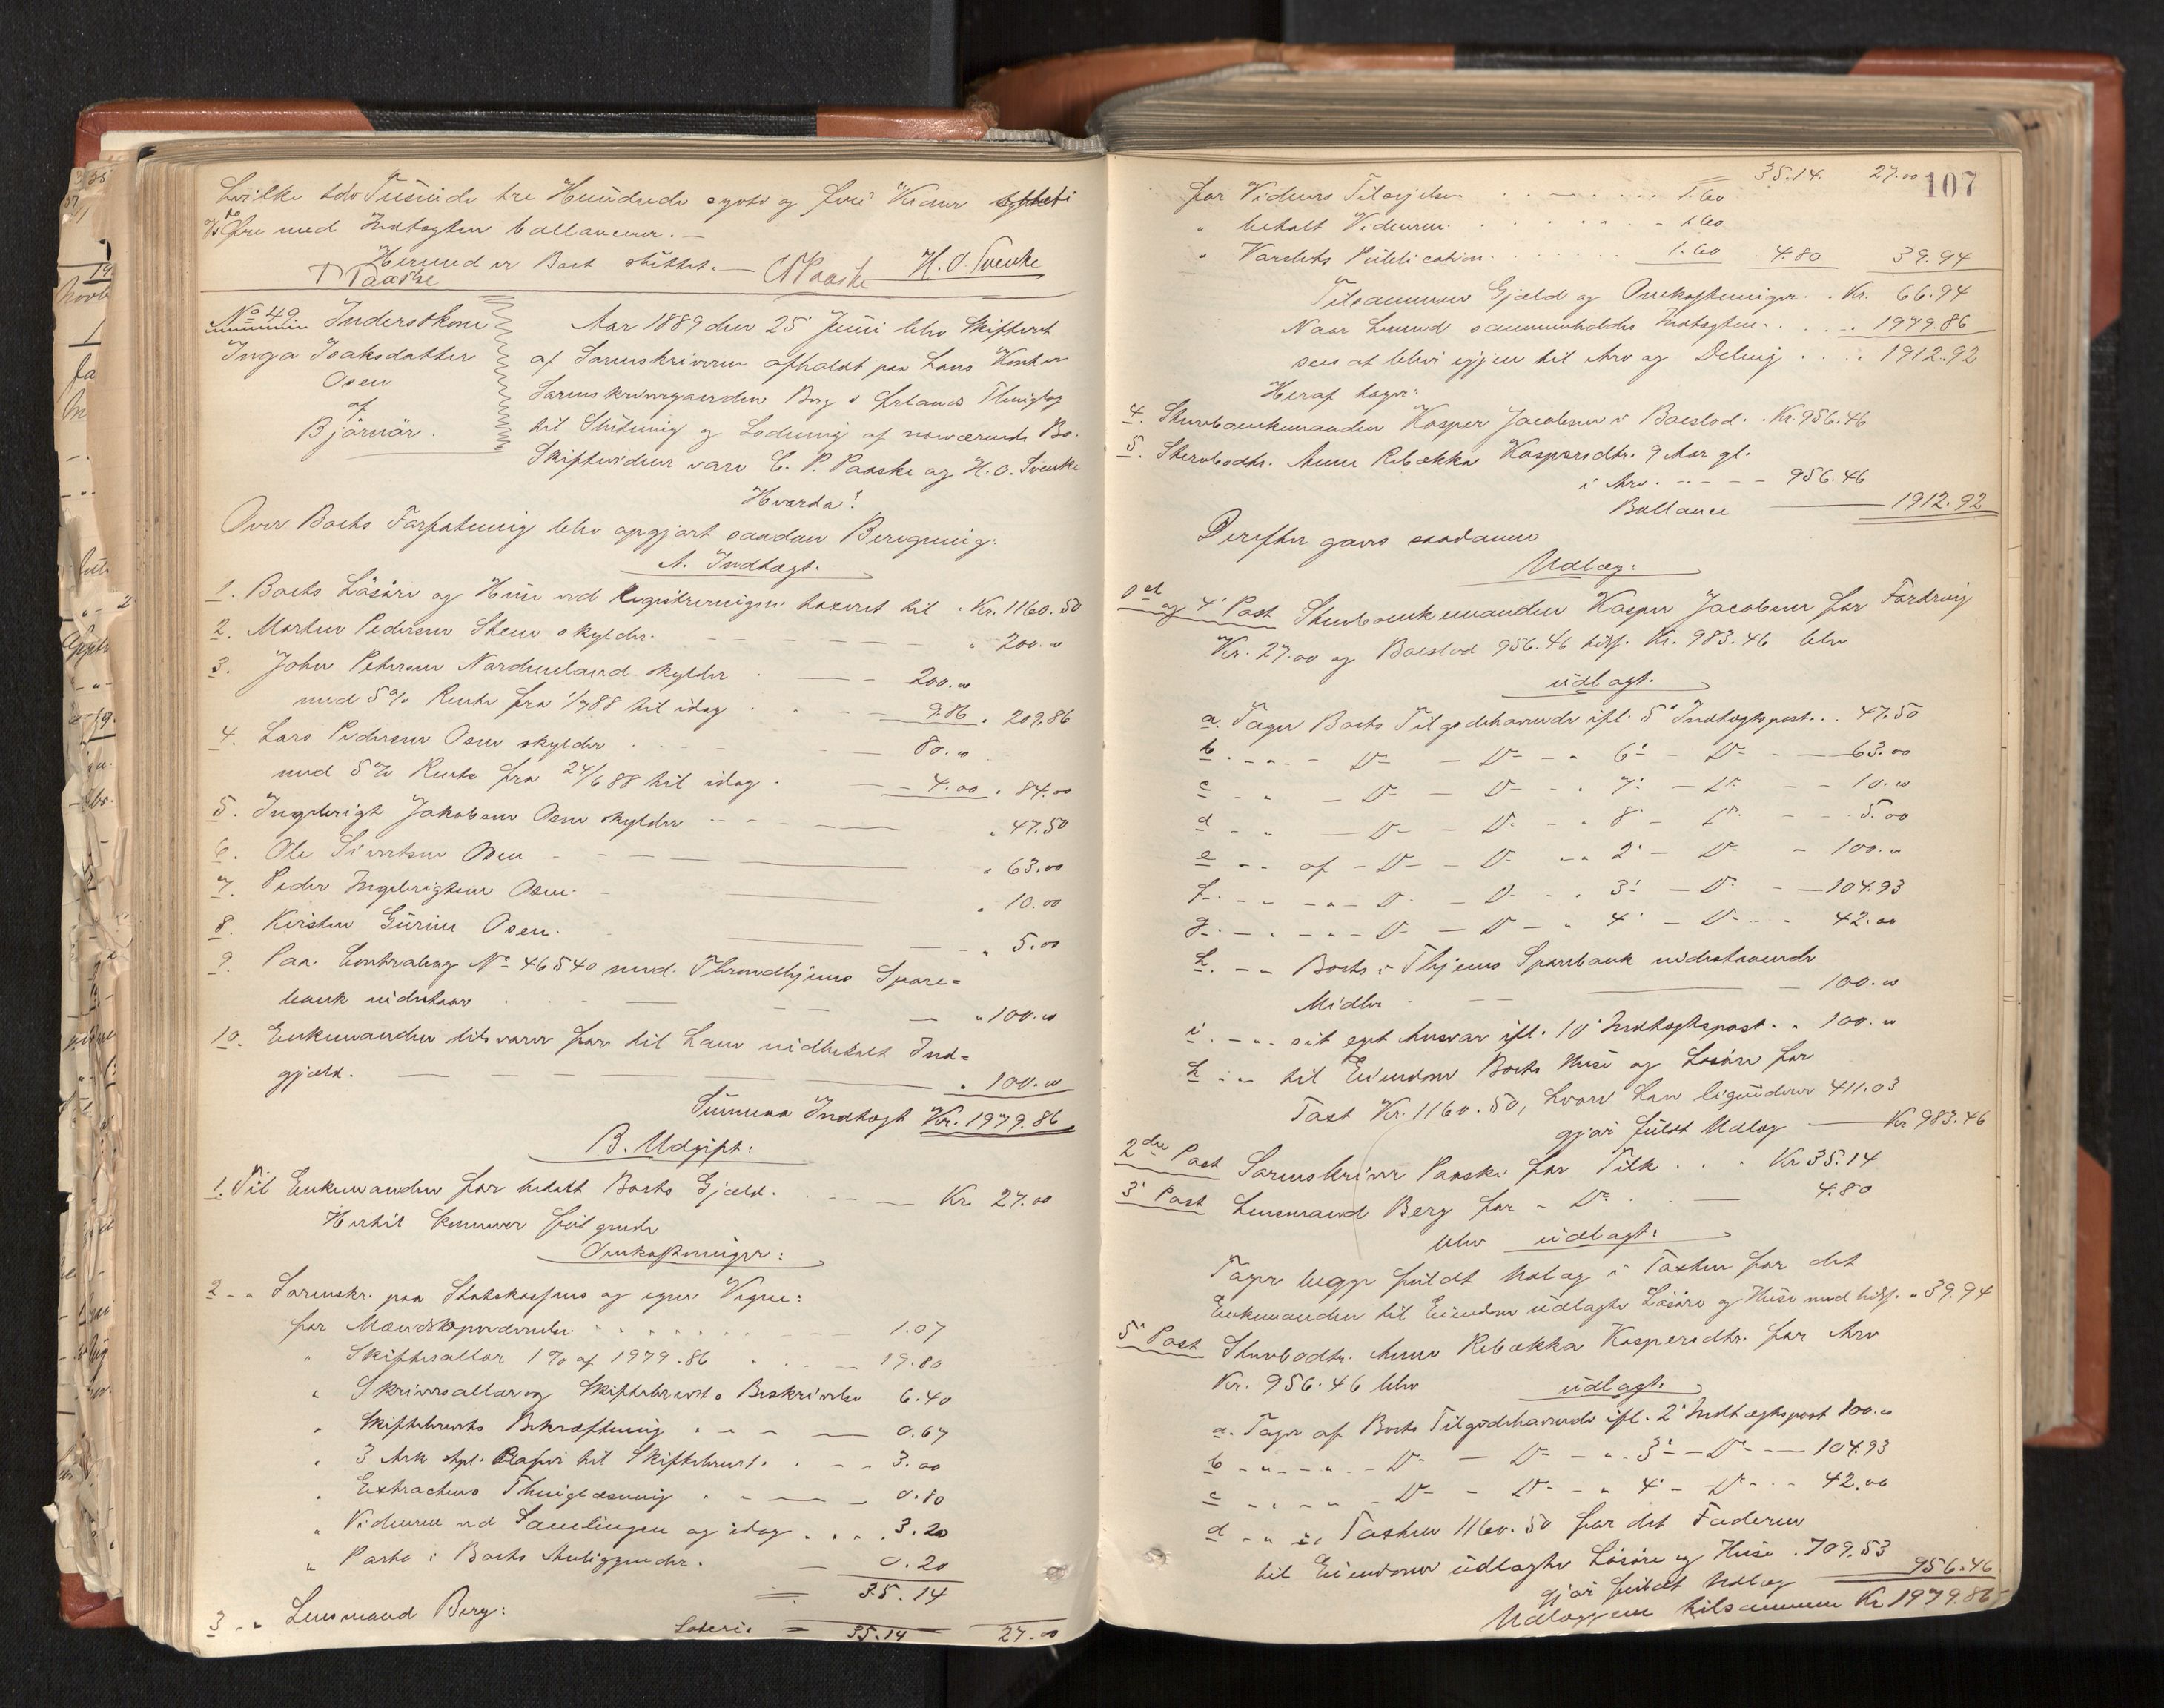 hvilke som Tusinde tre Hundrede og Kroner
og Øre med Indtægten ballancerer.—
Hermed er Boet sluttet.—
T Paaske CP Paaske H. O. Svenke
No 49. Inderstkone
Inga Isaksdatter
Osen
af
Bjørnør.
Aar 1889 den 25' Juni blev Skifteret
af Sorenskriveren afholdt paa hans Kontor
Sorenskrivergaarden Berg i Ørlands Thinglag
til Slutning og Lodning af nærværende Bo.
Skiftevidner vare C. P. Paaske og H. O. Svenke
Hvorda!
Over Boets Forfatning blev opgjort saadan Beregning:
A. Indtægt:
1. Boets Løsøre og Huse ved Registreringen taxeret til . Kr. 1160.50
2. Morten Pedersen Steen skylder " 200.00
3. John Petersen Nordmeland skylder 200.00
med 5% Rente fra 1/7 88 til idag 9.86 " 209.86
4. Lars Pedersen Osen skylder 80.00
med 5% Rente fra 24/6 88 til idag 4.00 " 84.00
5. Ingebrigt Jakobsen Osen skylder " 47.50
6. Ole Sivertsen Osen " 63.00
7. Peder Ingebrigtsen Osen " 10.00
8. Kirsten Gurine Osen " 5.00
9. Paa Contrabog No 46540 med Throndhjems Spare=
bank indestaar " 100.00
10. Enkemanden tilsvarer for til ham indbetalt Ind=
gjæld. " 100.00
Summa Indtægt Kr. 1979.86
B. Udgift:
1. Til Enkemanden for betalt Boets Gjæld Kr. 27.00
Hertil kommer følgende
Omkostninger:
2 - " Sorenskr. paa Statskassens og egne Vegne:
for 1.07
" Skiftesallar 1% af 1979.86 19.80
" Skriversallar og Skiftebrevets Beskrivelse 6.40
" Skiftebrevets Bekræftning 0.67
" 3 Ark stpl. Papir til Skiftebrevet 3.00
" Extractens Thinglæsning 0.80
" Vidnerne ved Samlingen og idag 3.20
" Porto i Boets Anliggender 0.20
35.14
3 - " Lensmand Berg:
Lateris 35.14 27.00
35.14. 27.00 107
for Vidners Tilsigelse 1.60
" betalt Vidnerne 1.60
" Varslets Publication 1.60 4.80 39.94
Tilsammen Gjæld og Omkostninger . Kr. 66.94
Naar hermed sammenholdes Indtægten 1979.86
sees at blive igjen til Arv og Deling 1912.92
Heraf tager:
4. Stervboenkemanden Kasper Jacobsen i Boeslod . Kr. 956.46
5. Stervbodtr. Anne Rebækka Kaspersdtr. 9 Aar gl.
i Arv 956.46
Ballance 1912.92
Derefter gaves saadanne
Udlæg:
1st og 4' Post Stervboenkemanden Kasper Jacobsen for Fordring
Kr. 27.00 og Boeslod 956.46 tils. Kr. 983.46 blev
udlagt.
a. Tager Boets Tilgodehavende ifl. 5' Indtægtspost 47.50
b. - " - Do - Do - " 6' - Do - 63.00
c - " - Do - Do - " 7' - Do - 10.00
d - " - Do - Do - " 8' - Do - 5.00
e - " af - Do - Do - " 2' - Do - 100.00
f - " - " - Do - Do - " 3' - Do - 104.93
g - " - " - Do - Do - " 4' - Do - 42.00
h. - " Boets i Thjems Sparebank indestaaende
Midler 100.00
i. - " sit eget Ansvar ifl. 10' Indtægtspost " 100.00
k - " til Eiendom Boets Huse og Løsøre for
Taxt Kr. 1160.50, hvori han liquiderer 411.03
gjør fuldt Udlæg Kr 983.46
2den Post Sorenskriver Paaske for Tilk. Kr 35.14
3' Post Lensmand Berg for - Do 4.80
blev udlagt:
Tager begge fuldt Udlæg i Taxten for det
Enkemanden til Eiendom udlagte Løsøre og Huse med tils. " 39.94
5' Post Stervbodtr. Anne Rebækka Kaspersdtr. for Arv
Kr. 956.46 blev udlagt.
a. Tager af Boets Tilgodehavende ifl. 2' Indtægtspost 100.00
b - " - " - Do - Do - " 3' - Do - 104.93
c - " - " - Do - Do - " 4' - Do - 42.00
d - " i Taxten 1160.50 for det Faderen
til Eiendom udlagte Løsøre og Huse . 709.53
gjør fuldt Udlæg 956.46
Udlæggene tilsammen Kr. 1979.86